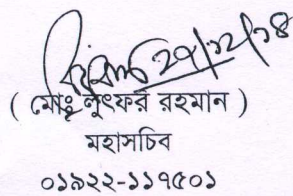 ২৭/১২/১৪
( মোঃ লুৎফর রহমান )
মহাসচিব
০১৯২২-১১৭৫০১